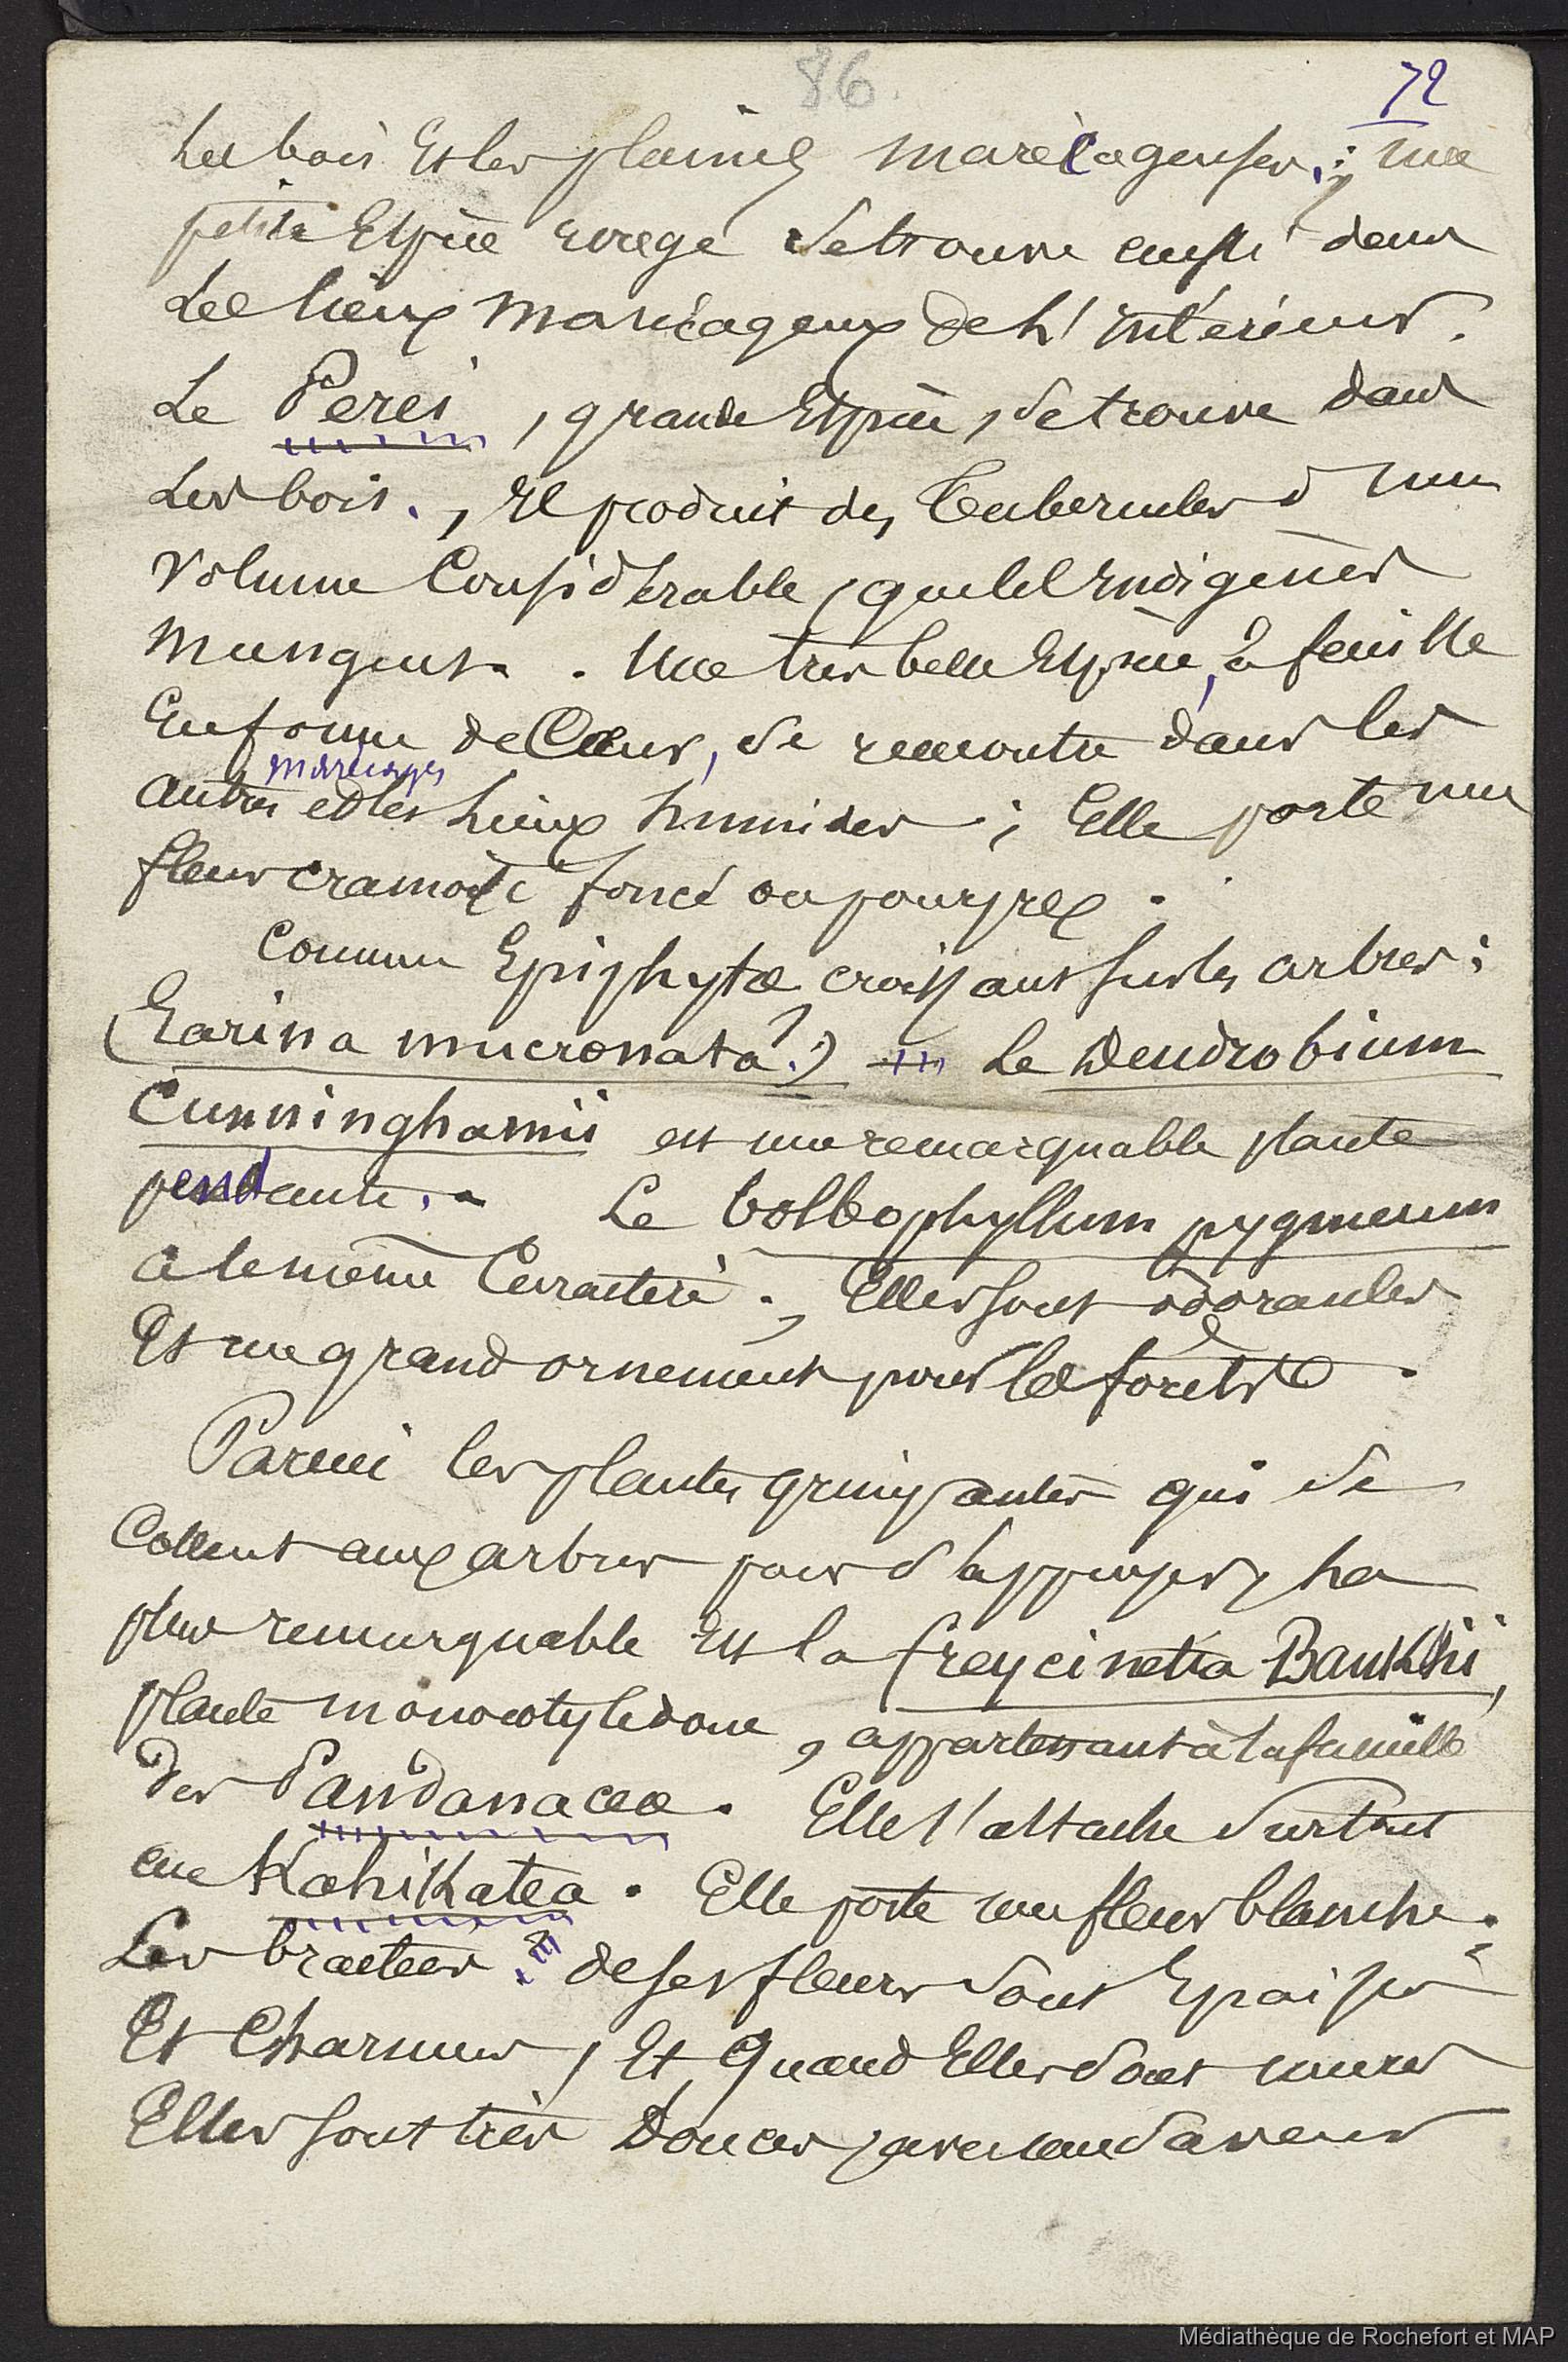 86.
72
les bois et les plaines marécageuses ; une
petite Espèce rouge se trouve aussi dans
les lieux marécageux de l'intérieur.
Le Perei, grande Espèce, se trouve dans
Les bois., il produit des Tubercules d'un
volume Considérable, que les Indigènes
mangent. Une très belle Espèce, à feuille
En forme de Cœur, se rencontre dans les
marécages
antres et les Lieux humides ; Elle porte une
fleur cramoisie foncé ou pourpre.
Comme Epiphytæ croissant sur les arbres ;
(Earina mucronata ?) Le Dendrobium
Cunninghamii est une remarquable plante
pendante. Le bolbophyllum pygmeum
a le même Caractère., Elles sont odorantes
Et un grand ornement pour les forêts.
Parmi les plantes grimpantes qui se
Collent aux arbres pour s'appuyer, la
plus remarquable est la freycinetia Banksii,
plante monocotyledone, appartenant à la famille
des Pandanaceæ. Elle s'attache surtout
au Kahikatea. Elle porte une fleur blanche.
Les bractées de ses fleurs sont Epaisses
Et Charnues, Et Quand Elles sont mures
Elles sont très Douces, avec une saveur
Médiathèque de Rochefort et MAP